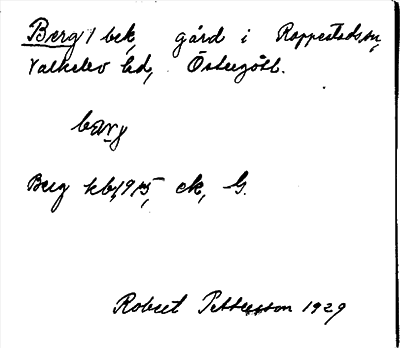 Berg / bek, gård i Rappestads sn,
Valkebo hd, Östergötl.
barj
Berg kb, 1915, ek, G.
Robert Pettersson 1929